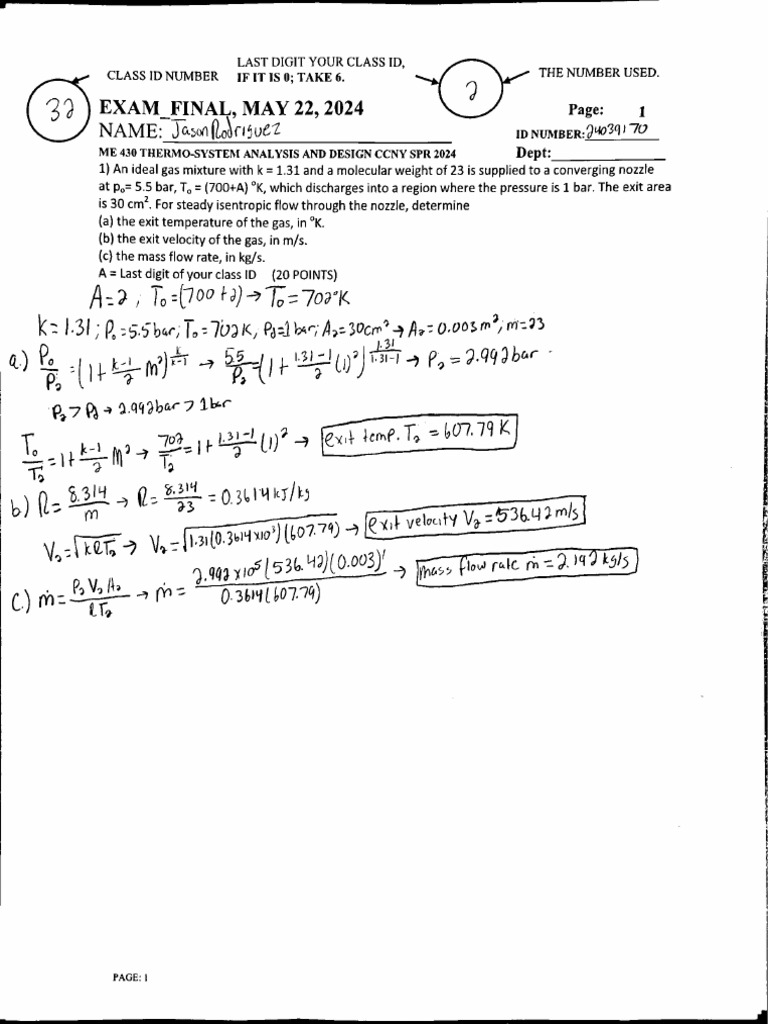 LAST DIGIT YOUR CLASS ID,
CLASS ID NUMBER IF IT IS 0; TAKE 6. THE NUMBER USED.
32 2
EXAM_FINAL, MAY 22, 2024 Page: 1
NAME: Jason Rodriguez ID NUMBER: 24039170
ME 430 THERMO-SYSTEM ANALYSIS AND DESIGN CCNY SPR 2024 Dept:
1) An ideal gas mixture with k = 1.31 and a molecular weight of 23 is supplied to a converging nozzle
at pₒ= 5.5 bar, Tₒ = (700+A) °K, which discharges into a region where the pressure is 1 bar. The exit area
is 30 cm². For steady isentropic flow through the nozzle, determine
(a) the exit temperature of the gas, in °K.
(b) the exit velocity of the gas, in m/s.
(c) the mass flow rate, in kg/s.
A = Last digit of your class ID (20 POINTS)
A=2 ; T₀=(700+2)→T₀=702°K
k=1.31; P₀=5.5bar; T₀=702K, Pd=1bar; A₂=30cm²→A₂=0.003m²; m=23
a.) P₀/P₂ = (1+ (k-1)/2 M²)^(k/(k-1)) → 5.5/P₂ = (1+ (1.31-1)/2 (1)²)^(1.31/(1.31-1)) → P₂=2.992bar
P₂>Pd→2.992bar>1bar
T₀/T₂ = 1+ (k-1)/2 M² → 702/T₂ = 1+ (1.31-1)/2 (1)² → exit temp. T₂ = 607.79 K
b) R= 8.314/m → R= 8.314/23 = 0.3614 kJ/kg
V₂=√(kRT₂) → V₂=√(1.31(0.3614x10³)(607.79)) → exit velocity V₂=536.42m/s
C.) ṁ= P₂V₂A₂/RT₂ → ṁ= 2.992x10⁵(536.42)(0.003)/0.3614(607.79) → mass flow rate ṁ=2.192 kg/s
PAGE: 1